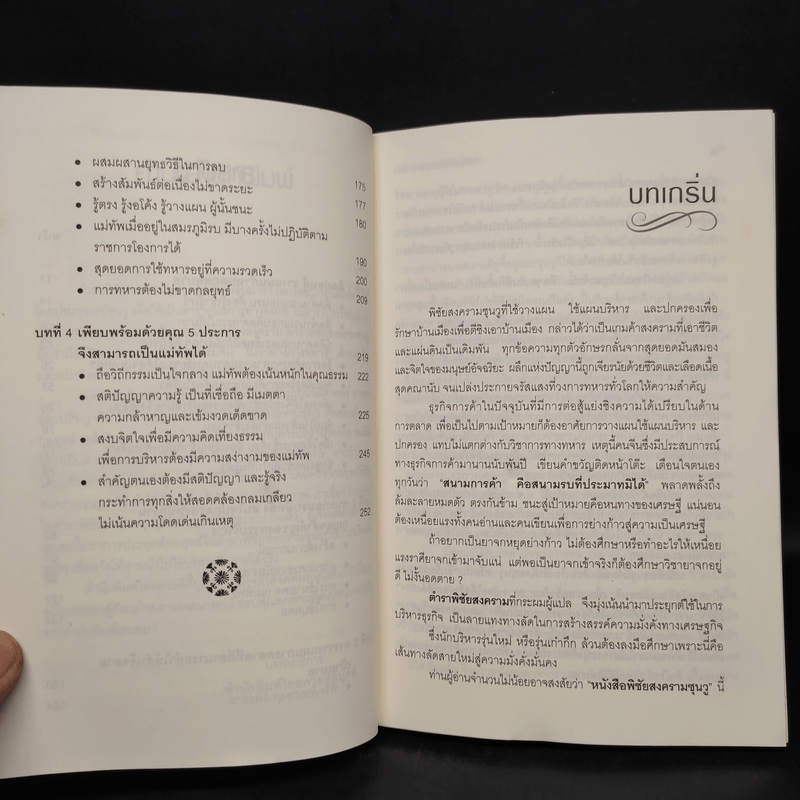 ผสมผสานยุทธวิธีในการลบ 175
สร้างสัมพันธ์ต่อเนื่องไม่ขาดระยะ 177
รู้ตรง รู้งอโค้ง รู้วางแผน ผู้นั้นชนะ 180
แม่ทัพเมื่ออยู่ในสมรภูมิรบ มีบางครั้งไม่ปฏิบัติตาม
ราชการโองการได้ 190
สุดยอดการใช้ทหารอยู่ที่ความรวดเร็ว 200
การทหารต้องไม่ขาดกลยุทธ์ 209
บทที่ 4 เพียบพร้อมด้วยคุณ 5 ประการ
จึงสามารถเป็นแม่ทัพได้ 219
ถือวิถีกรรมเป็นใจกลาง แม่ทัพต้องเน้นหนักในคุณธรรม 222
สติปัญญาความรู้ เป็นที่เชื่อถือ มีเมตตา
ความกล้าหาญและเข้มงวดเด็ดขาด 225
สงบจิตใจเพื่อมีความคิดเที่ยงธรรม
เพื่อการบริหารต้องมีความสง่างามของแม่ทัพ 245
สำคัญตนเองต้องมีสติปัญญา และรู้จริง
กระทำการทุกสิ่งให้สอดคล้องกลมเกลียว
ไม่เน้นความโดดเด่นเกินเหตุ 252
บทเกริ่น
พิชัยสงครามซุนวูที่ใช้วางแผน ใช้แผนบริหาร และปกครองเพื่อ
รักษาบ้านเมืองเพื่อตีชิงเอาบ้านเมือง กล่าวได้ว่าเป็นเกมค้าสงครามที่เอาชีวิต
และแผ่นดินเป็นเดิมพัน ทุกข้อความทุกตัวอักษรกลั่นจากสุดยอดมันสมอง
และจิตใจของมนุษย์อัจฉริยะ ผลึกแห่งปัญญานี้ถูกเจียรนัยด้วยชีวิตและเลือดเนื้อ
สุดคณานับ จนเปล่งประกายจรัสแสงที่วงการทหารทั่วโลกให้ความสำคัญ
ธุรกิจการค้าในปัจจุบันที่มีการต่อสู้แย่งชิงความได้เปรียบในด้าน
การตลาด เพื่อเป็นไปตามเป้าหมายก็ต้องอาศัยการวางแผนใช้แผนบริหาร และ
ปกครอง แทบไม่แตกต่างกับวิชาการทางทหาร เหตุนี้คนจีนซึ่งมีประสบการณ์
ทางธุรกิจการค้ามานานนับพันปี เขียนคำขวัญติดหน้าโต๊ะ เตือนใจตนเอง
ทุกวันว่า “สนามการค้า คือสนามรบที่ประมาทมิได้” พลาดพลั้งถึง
ล้มละลายหมดตัว ตรงกันข้าม ชนะสู่เป้าหมายคือหนทางของเศรษฐี แน่นอน
ต้องเหนื่อยแรงทั้งคนอ่านและคนเขียนเพื่อการย่างก้าวสู่ความเป็นเศรษฐี
ถ้าอยากเป็นยาจกหยุดย่างก้าว ไม่ต้องศึกษาหรือทำอะไรให้เหนื่อย
แรงราศียาจกเข้ามาจับแน่ แต่พอเป็นยาจกเข้าจริงก็ต้องศึกษาวิชายาจกอยู่
ดี ไม่งั้นอดตาย ?
ตำราพิชัยสงครามที่กระผมผู้แปล จึงมุ่งเน้นนำมาประยุกต์ใช้ในการ
บริหารธุรกิจ เป็นลายแทงทางลัดในการสร้างสรรค์ความมั่งคั่งทางเศรษฐกิจ
ซึ่งนักบริหารรุ่นใหม่ หรือรุ่นเก๋ากึ๊ก ล้วนต้องลงมือศึกษาเพราะนี่คือ
เส้นทางลัดสายใหม่สู่ความมั่งคั่งมั่นคง
ท่านผู้อ่านจำนวนไม่น้อยอาจสงสัยว่า “หนังสือพิชัยสงครามซุนวู” นี้